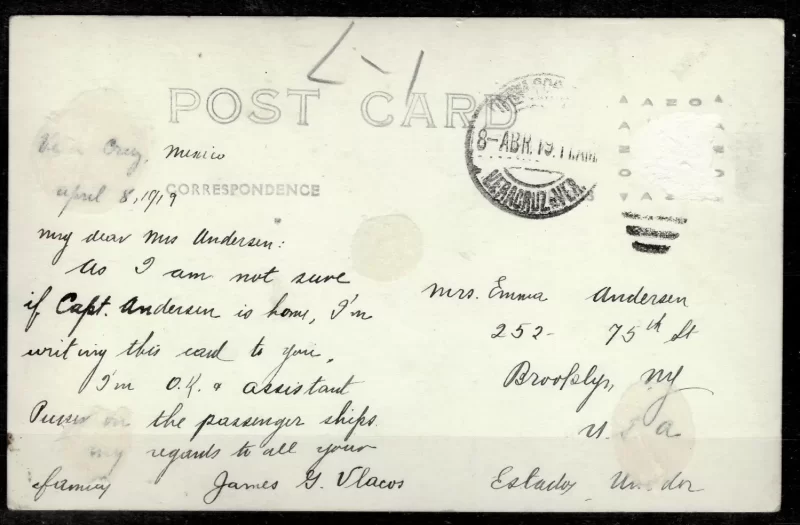 POST CARD
8-ABR.19.11AM.
VERACRUZ-VER.
AZO
Vera Cruz, Mexico
April 8, 1919
CORRESPONDENCE
My dear Mrs Andersen:
As I am not sure
if Capt. Andersen is home, I'm
writing this card to you.
I'm O.K. & assistant
Purser on the passenger ships.
my regards to all your
family James G. Vlacos
Mrs. Emma Andersen
252- 75th St
Brooklyn, NY
U. S a
Estados Unidos